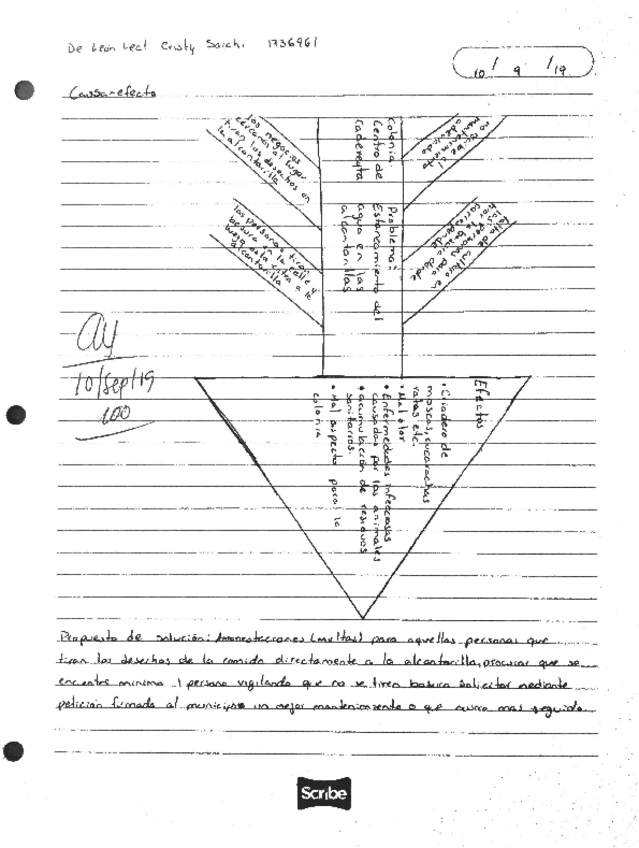 De León Leal Cristy Sarahi 1736961
10 / 9 /19
Causa-efecto
los negocios
cercanos al lugar
tiran los desechos en
la alcantarilla
las personas tiran
basura en la calle y
luego esta entra a la
alcantarilla
Colonia
Centro de
Cadereyta
Problema:
Estancamiento del
agua en las
alcantarillas
no recibe el
mantenimiento
adecuado
Falta de cultura en
las personas para
tirar la basura donde
corresponde
10/Sep/19
100
Efectos
• Criadero de
moscas, cucarachas
ratas, etc.
• Mal olor
• Enfermedades infecciosas
causadas por los animales
• acumulación de residuos
sanitarios.
• Mal aspecto para la
colonia
Propuesta de solución: Amonestaciones (multas) para aquellas personas que
tiran los desechos de la comida directamente a la alcantarilla, procurar que se
encuentre minimo 1 persona vigilando que no se tiren basura solicitar mediante
petición firmada al municipio un mejor mantenimiento o que ocurra mas seguido.
Scribe